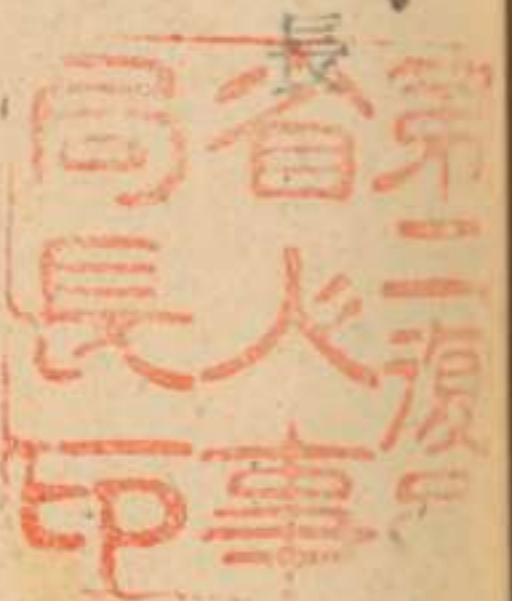 長
第二復員
省人事
局長印